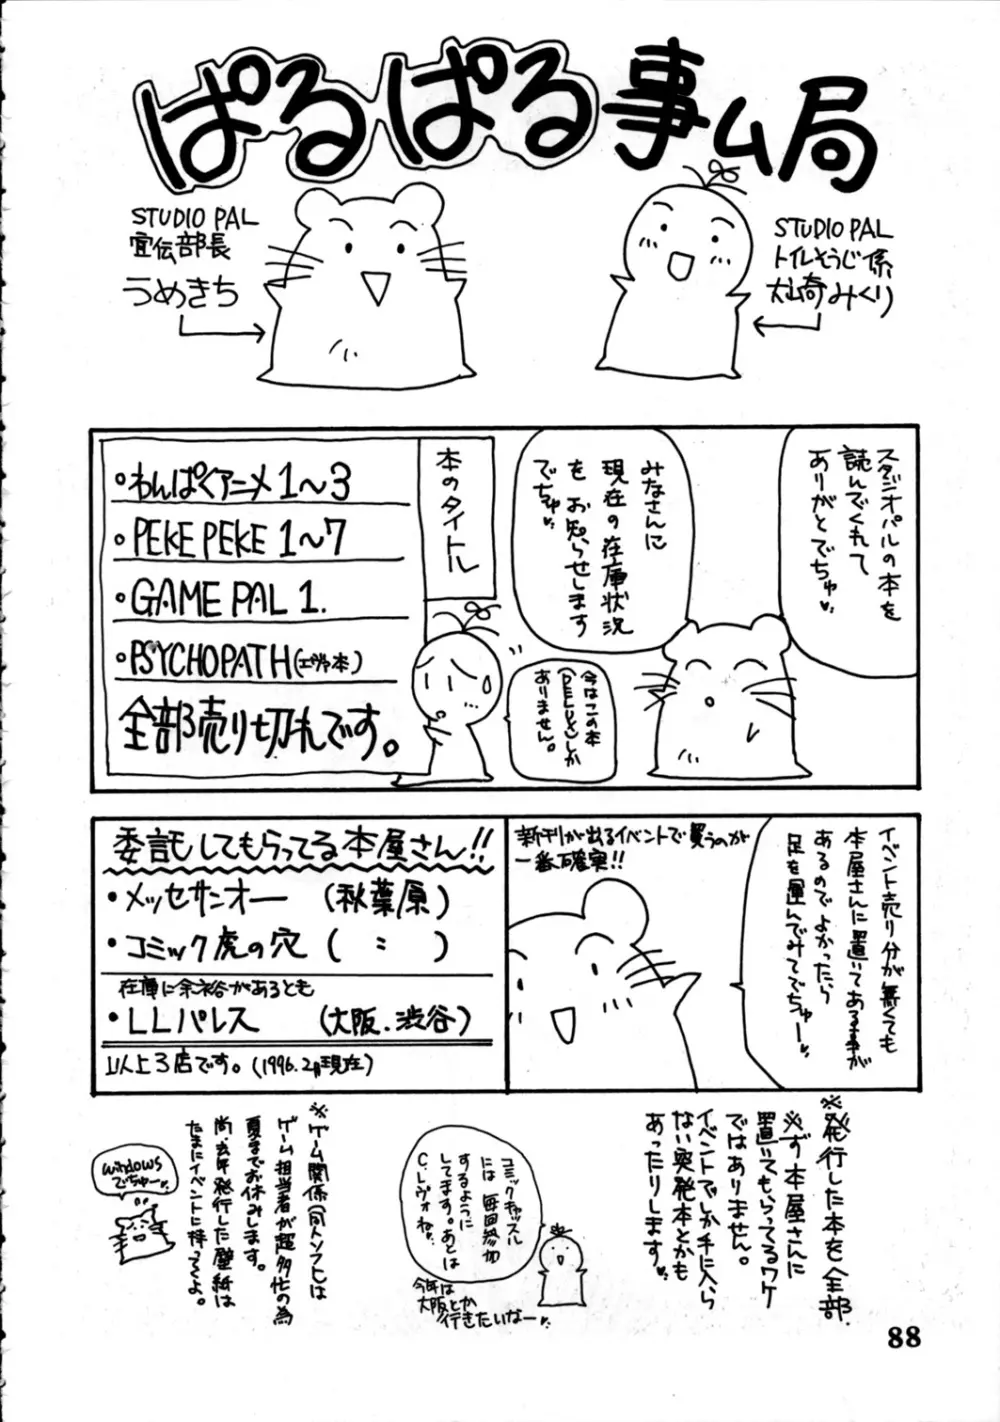 ぱるぱる事ム局
STUDIO PAL
宣伝部長
うめきち
STUDIO PAL
トイレそうじ係
犬山奇みくり
スタジオパルの本を
読んでくれて
ありがとでちゅ
みなさんに
現在の在庫状況
をお知らせします
でちゅ
本のタイトル
・わんぱくアニメ1〜3
・PEKE PEKE 1〜7
・GAME PAL 1.
・PSYCHOPATH(エヴァ本)
全部売り切れです。
今はこの本
(DELUX)しか
ありません。
イベント売り分が無くても
本屋さんに置いてある事が
あるのでよかったら
足を運んでみてでちゅー
新刊が出るイベントで買うのが
一番確実!!
委託してもらってる本屋さん!!
・メッセサンオー (秋葉原)
・コミック虎の穴 ( 〃 )
在庫に余裕があるとも
・LLパレス (大阪.渋谷)
以上3店です。(1996.2月現在)
※発行した本を全部
※ず本屋さんに
置いてもらってるワケ
ではありません。
イベントでしか手に入ら
ない突発本とかも
あったりします
コミックキャッスル
には毎回参加
するように
してます。あとは
C.レヴォね。
今年は
大阪とか
行きたいなー
※ゲーム関係(同人ソフト)は
ゲーム担当者が超多忙の為
夏までお休みします。
尚.去年発行した壁紙は
たまにイベントに持ってくよ。
windows
でちゅー
88